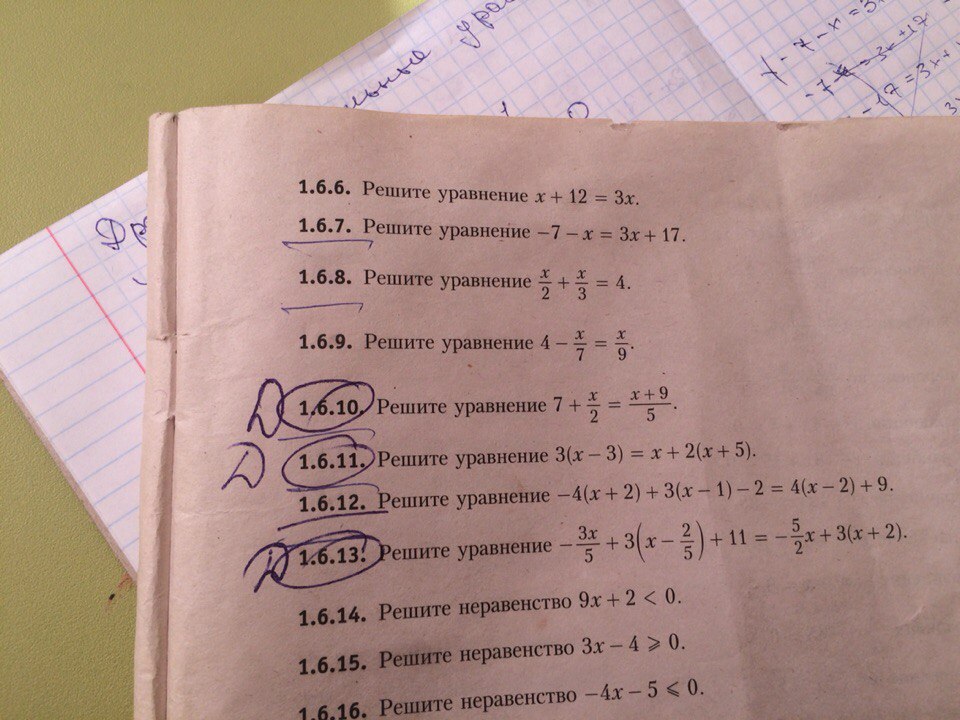 x - 7 - x = 3x
1.6.6. Решите уравнение x + 12 = 3x.
1.6.7. Решите уравнение −7 − x = 3x + 17.
1.6.8. Решите уравнение x/2 + x/3 = 4.
1.6.9. Решите уравнение 4 − x/7 = x/9.
Д 1.6.10. Решите уравнение 7 + x/2 = (x + 9)/5.
Д 1.6.11. Решите уравнение 3(x − 3) = x + 2(x + 5).
1.6.12. Решите уравнение −4(x + 2) + 3(x − 1) − 2 = 4(x − 2) + 9.
Д 1.6.13. Решите уравнение −3x/5 + 3(x − 2/5) + 11 = −5/2x + 3(x + 2).
1.6.14. Решите неравенство 9x + 2 < 0.
1.6.15. Решите неравенство 3x − 4 ⩾ 0.
1.6.16. Решите неравенство −4x − 5 ⩽ 0.